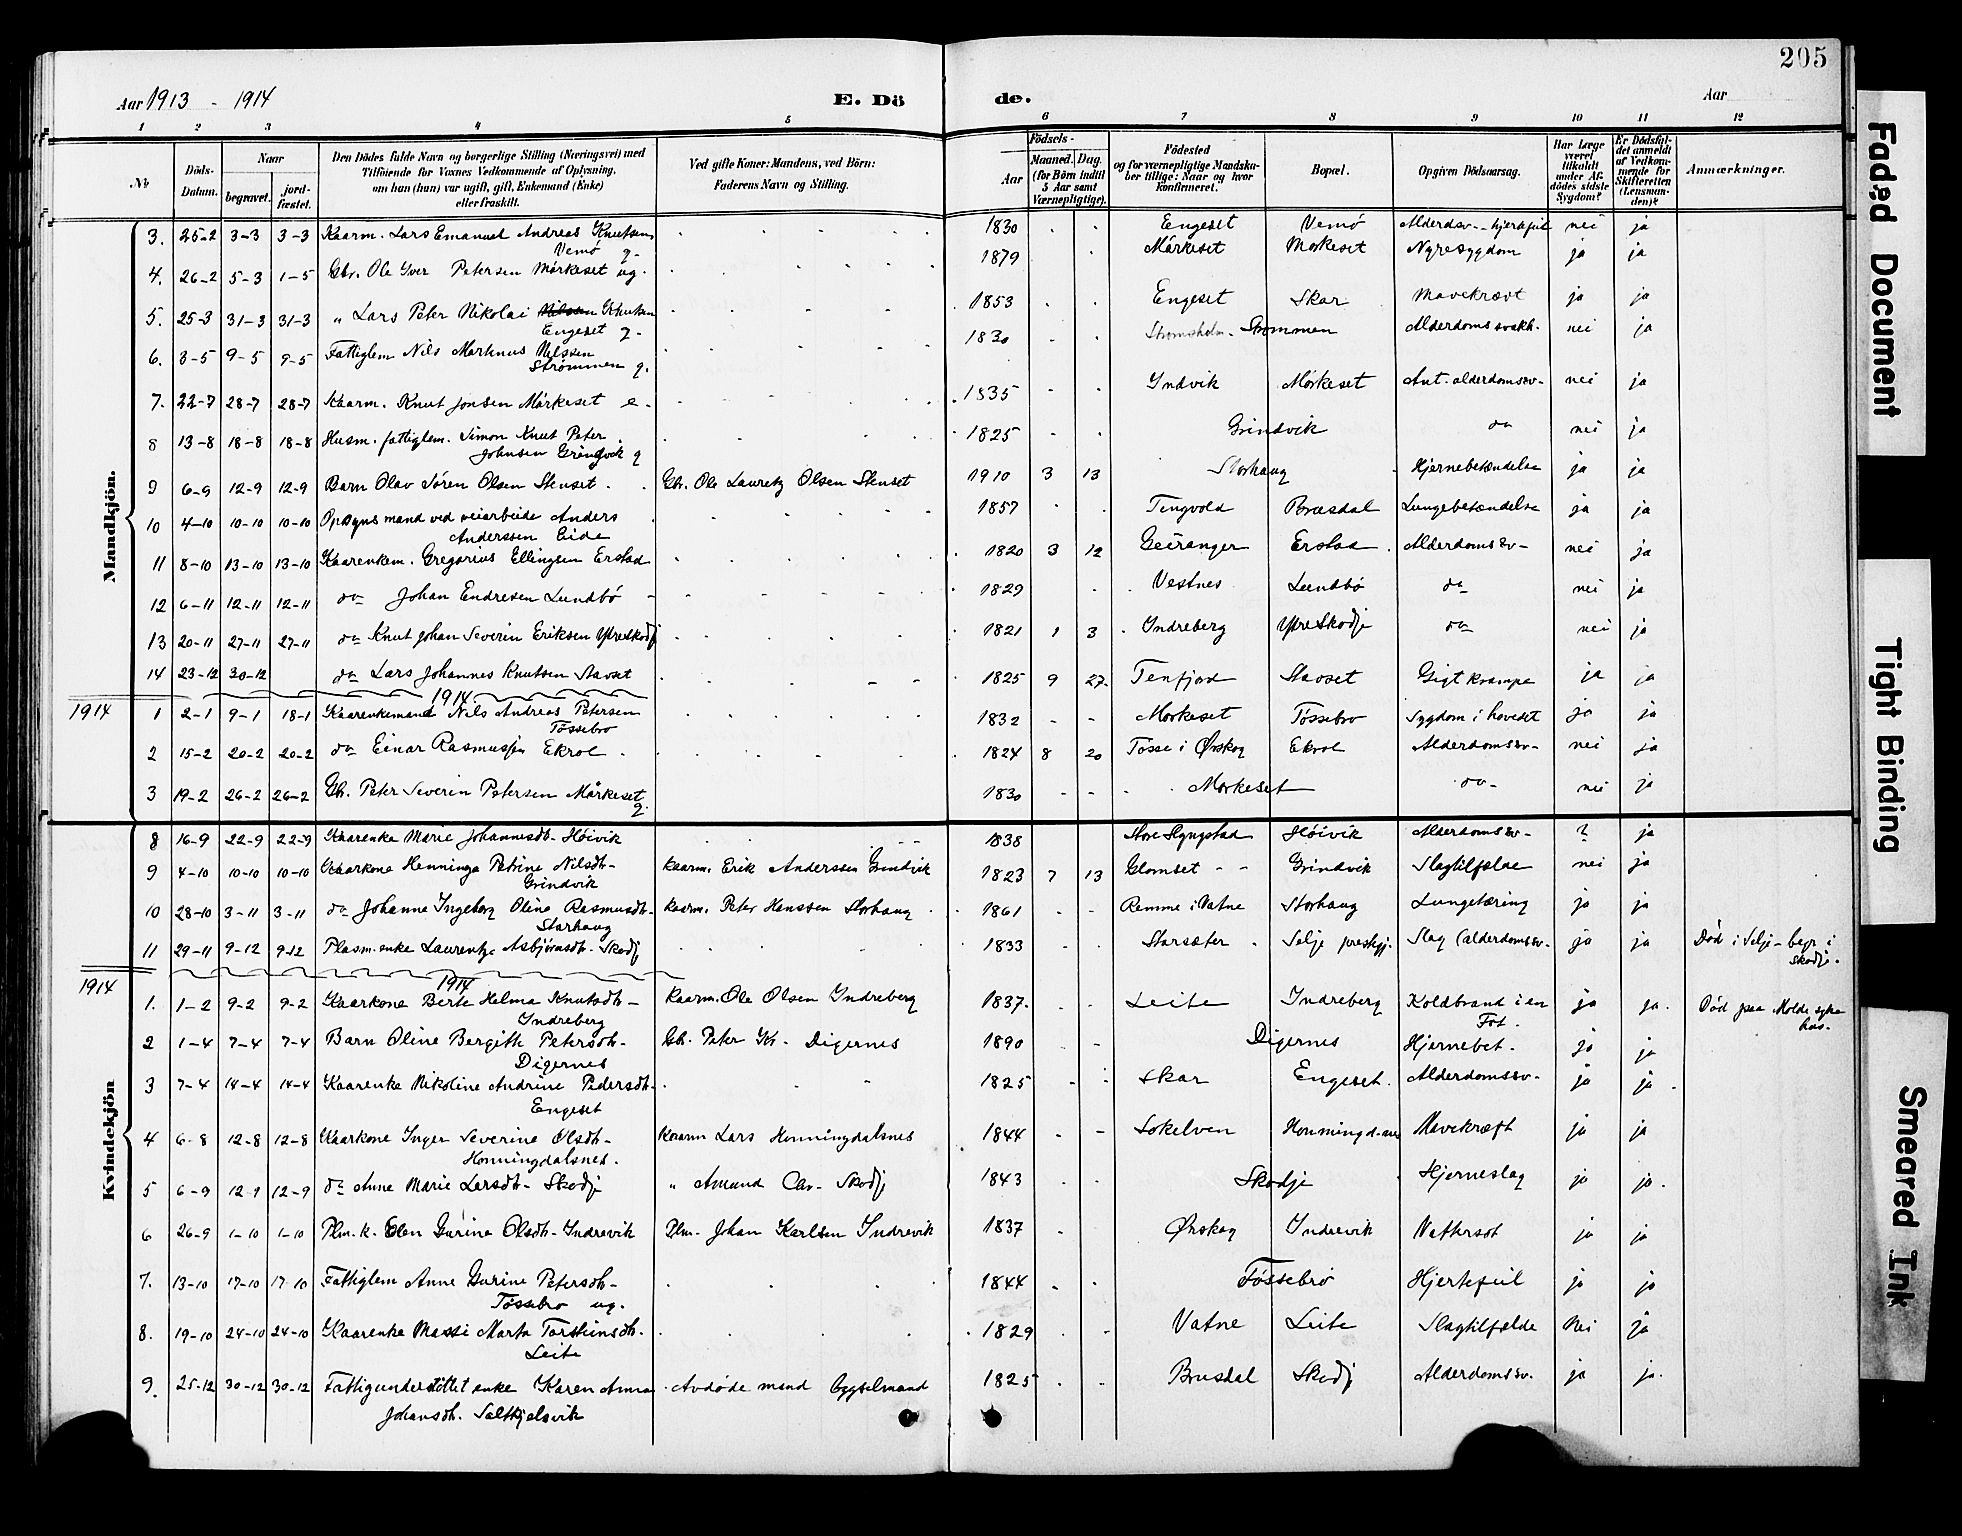 205
Aar 1913 - 1914 E. Dö de. Aar
1 2 3 4 5 6 7 8 9 10 11 12
No Döds-Datum. Naar begravet. jord-fæstet. Den Dödes fulde Navn og borgerlige Stilling (Næringsvei) med Tilföiende for Voxnes Vedkommende af Oplysning, om han (hun) var ugift, gift, Enkemand (Enke) eller fraskilt. Ved gifte Koner: Mandens, ved Börn: Faderens Navn og Stilling. Födsels- Aar Maaned. Dag. (for Börn indtil 5 Aar samt Værnepligtige). Födested og for værnepligtige Mandska-ber tillige: Naar og hvor konfirmeret. Bopæl. Opgiven Dödsaarsag. Har Læge været tilkaldt under Af-dödes sidste Sygdom? Er Dödsfal-det anmeldt af Vedkom-mende for Skifteretten (Lensman-den)? Anmærkninger.
Mandkjön.
3. 25-2 3-3 3-3 Kaarm. Lars Emanuel Andreas Knutsen 1830 Engeset Vemö Alderdsv.-hjertefeil nei ja
Vemö g-
4. 26-2 5-3 1-5 Gbr. Ole Iver Petersen Mörkeset ug. 1879 Mörkeset Morkeset Nyresygdom ja ja
5. 25-3 31-3 31-3 " Lars Peter Nikolai Nilssen Knutsen 1853 Engeset Skar Mavekræft ja ja
Engeset g-
6. 3-5 9-5 9-5 Fattiglem Nils Martinus Nilssen 1830 Stromsholm - Strommen Alderdomssvakh. nei ja
Strömmen g.
7. 22-7 28-7 28-7 Kaarm. Knut Jonsen Mörkeset e- 1835 Indvik Mörkeset Ant. alderdomssv- nei ja
8 13-8 18-8 18-8 Husm. fattiglem. Simon Knut Peter 1825 Grindvik do nei ja
Johnsen Grindvik g
9 6-9 12-9 12-9 Barn Olav Sören Olsen Stenset Gbr. Ole Lauretz Olsen Stenset 1910 3 13 Storhaug Hjernebetændelse ja ja
10 4-10 10-10 10-10 Opsynsmand ved veiarbeide Anders 1857 Tingvold Brusdal Lungebetændelse ja ja
Anderssen Eide
11 8-10 13-10 13-10 Kaarenkem. Gregorius Ellingsen Erstad 1820 3 12 Geiranger Erstad Alderdomssv- nei ja
12 6-11 12-11 12-11 do Johan Endresen Lundbö 1829 Vestnes Lundbö do nei ja
13 20-11 27-11 27-11 do Knut Johan Severin Eriksen Ytreskodj 1821 1 3 Indreberg Ytreskodje do nei ja
14 23-12 30-12 do Lars Johannes Knutsen Stavset 1825 9 27 Tenfjord Stavset Gigt krampe ja ja
1914
1914 1 2-1 9-1 18-1 Kaarenkemand Nils Andreas Petersen 1832 Morkeset Tössebro Sygdom i hovedet ja ja
Tössebro
2 15-2 20-2 20-2 do Einar Rasmussen Ekrol 1824 8 20 Tosse i Ørskog Ekrol Alderdomssv- nei ja
3 19-2 26-2 26-2 Gbr. Peter Severin Petersen Mörkeset 1830 Morkeset do nei ja
g.
Kvindekjön
8 16-9 22-9 22-9 Kaarenke Marie Johannesdt- Höivik 1838 Höivik Alderdomssv- ? ja
9 4-10 10-10 10-10 Kaarkone Henninga Petrine Nilsdt- Kaarm. Erik Anderssen Grindvik 1823 7 13 Glomset Grindvik Slagtilfælde nei ja
Grindvik
10 28-10 3-11 3-11 do Johanne Ingeborg Oline Rasmusdt- Kaarm. Peter Hanssen Storhaug 1861 Remme i Vatne Storhaug Lungetæring ja ja
Storhaug
11 29-11 9-12 9-12 Plasm.enke Laurentze Asbjørnsdt- Skodj 1833 Storsæter Selje prestgj. Slag (alderdomssv- ja ja Död i Selje - begr i
Skodje.
1914
1914 1. 1-2 9-2 9-2 Kaarkone Berte Helma Knutsdt- Kaarm. Ole Olsen Indreberg 1837 Leite Indreberg Koldbrand i en ja ja. Död paa Molde syke
Indreberg Fot. hus.
2 1-4 7-4 7-4 Barn Oline Bergitte Petersdt- Gb. Peter K- Digernes 1890 Digernes Hjernebet- ja ja
Digernes
3 7-4 14-4 14-4 Kaarenke Nikoline Andrine Pedersdt- 1825 Skar Engeset. Alderdomssv- ja ja
Engeset
4 6-8 12-8 12-8 Kaarkone Inger Severine Olsdt- Kaarm Lars Honningdalsnes 1844 Solelven Mavekræft ja ja
Honningdalsnes.
5 6-9 12-9 12-9 do Anne Marie Larsdt- Skodje " Amund Skodj 1843 Skodje Hjerneslag ja ja.
6 26-9 1-10 1-10 Plm.k. Elen Gurine Olsdt- Indrevik Plm. Johan Karlsen Indrevik 1837 Ørskog Indrevik Vattersot ja ja
7. 13-10 17-10 17-10 Fattiglem Anne Gurine Petersdt- 1844 Tössebrö Hjertefeil ja ja
Tössebro ug.
8. 19-10 24-10 24-10 Kaarenke Massi Marta Torsteinsdt. 1829 Vatne Leite Slagtilfælde Nei ja
Leite
9. 25-12 30-12 30-12 Fattigunderstöttet enke Karen Anna Avdöde mand bygselmand 1825 Brusdal Skodj Alderdomssv. ja ja.
Johansdt. Saltkjelsvik
Faded Document
Tight Binding
Smeared Ink